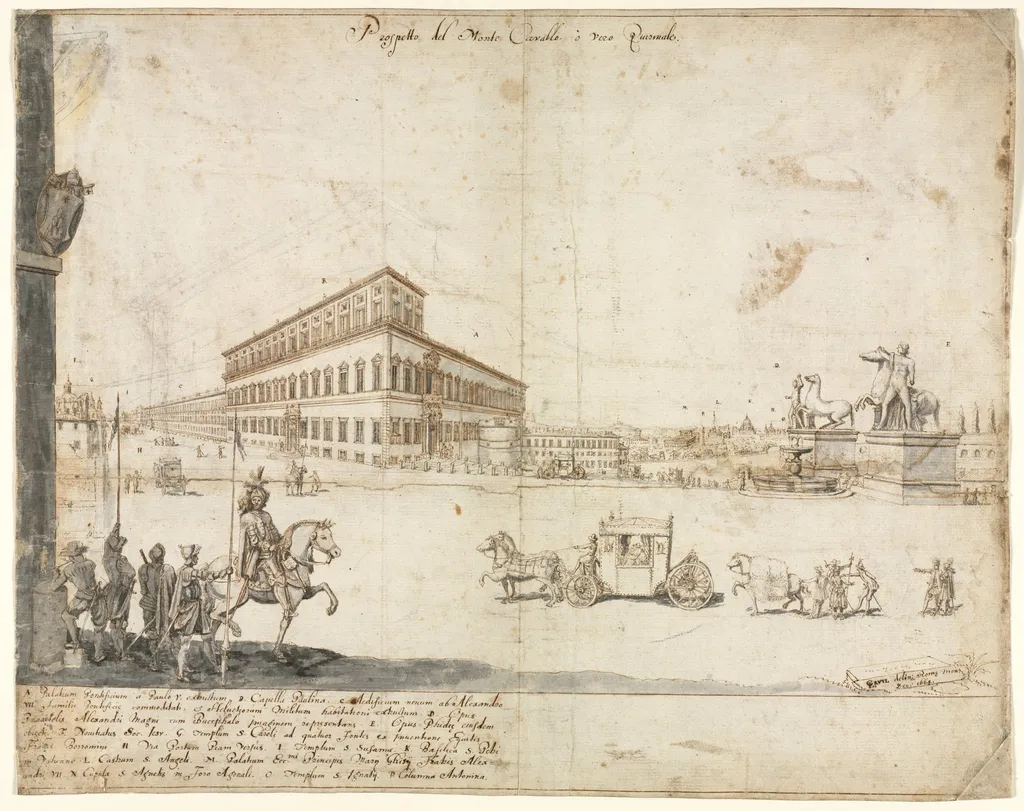 Prospetto del Monte Cavallo ò vero Quirinale.
A
R
C
F
G
H
D
E
A Palatium Pontificium à Paulo V. extructum, B Capella Paulina. C Aedificium novum ab Alexandro
VII familiae Pontificiae commoditati, & Helvetiorum Militum habitationi extructum D Opus
Praxitelis Alexandri Magni cum Bucephalo imaginem repraesentans E Opus Phidiae eiusdem
F Novitiatus Soc. Iesu. G Templum S. Caroli ad quatuor Fontes ex inventione Equitis
Borromini H Via Portam Piam versus. I Templum S. Susannae. K Basilica S. Petri
in Vaticano L Castrum S. Angeli. M Palatium Principis Mary Ghisy Fratris Alex
andri VII N Cupola S. Agnetis in Foro Agonali. O Templum S. Ignaty. P Columna Antonina.
delin: